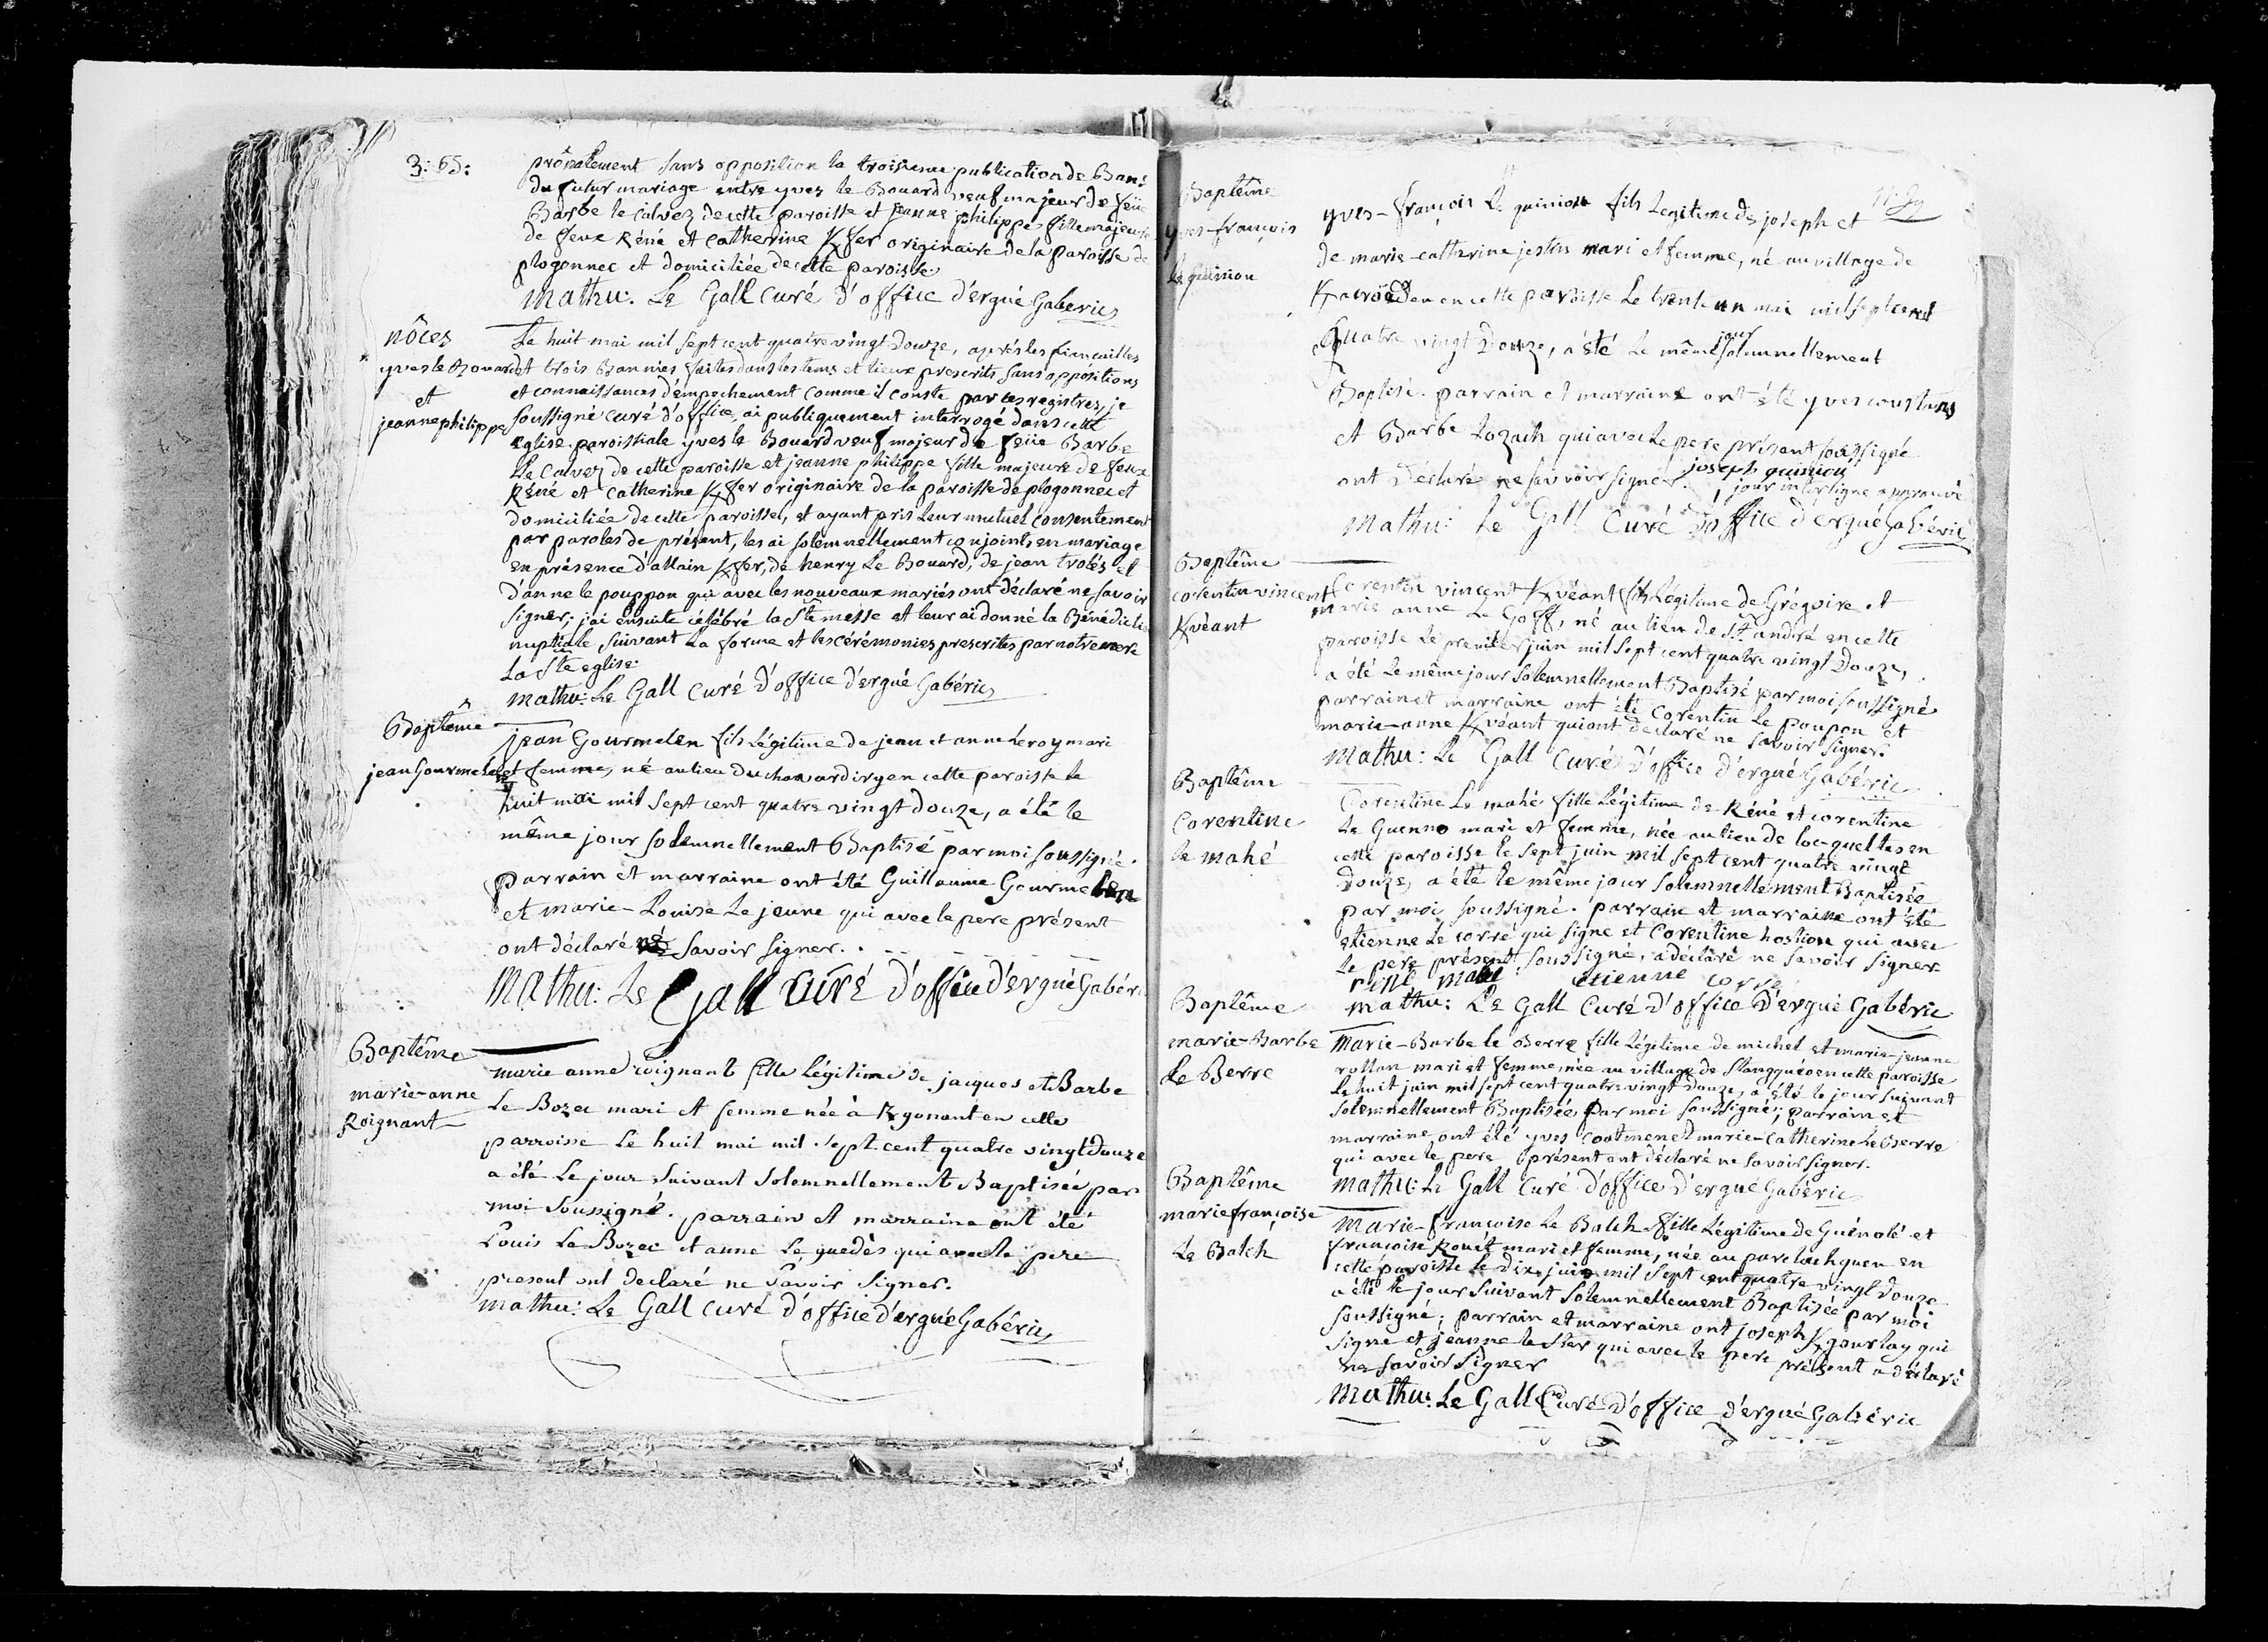 3: 65:
prônalement sans opposition la troisieme publication de Bans
du futur mariage entre yves le Bouard veuf majeur de feüe
Barbe le calvez de cette paroisse et jeanne philippe fille majeure
de feux Réné et catherine K/fer originaire de la paroisse de
plogonnec et domiciliée de cette paroisse.
mathu: Le Gall Curé d'office d'ergué Gaberic
nôces
yves le Bouard
et
jeanne philippe
Le huit mai mil sept cent quatre vingt Douze, après les fiancailles
et trois Bannies faites dans les tems et lieux prescrits sans oppositions
et connaissances d'empechement comme il conste par les registres, je
soussigné curé d'office, ai publiquement interrogé dans cette
eglise paroissiale yves le Bouard veuf majeur de feüe Barbe
Le Calvez de cette paroisse et jeanne philippe fille majeure de feux
Réné et Catherine K/fer originaire de la paroisse de plogonnec et
domiciliée de cette paroisse, et ayant pris leur mutuel consentement
par paroles de présent, les ai solemnellement conjoints en mariage
en présence d'allain K/fer, de henry Le Bouard, de jean trolés et
d'anne le pouppon qui avec les nouveaux mariés ont déclaré ne savoir
signer; j'ai ensuite célébré la Ste messe et leur ai donné la Bénédiction
nuptiale suivant La forme et les cérémonies prescrites par notre mere
La Ste eglise.
mathu: Le Gall Curé d'office d'ergué Gabéric
Baptême
jean Gourmelen
jean Gourmelen fils Légitime de jean et anne Le roy mari
et femme, né au lieu du chouardiry en cette paroisse le
huit mai mil sept cent quatre vingt douze, a été le
même jour solemnellement Baptisé par moi soussigné.
parrain et marraine ont été Guillaume Gourmelen
et marie-Louise Le jeune qui avec le pere présent
ont déclaré ne savoir signer.
Mathu: Le Gall Curé d'office d'ergué Gabéric
Baptême
marie-anne
Roignant
marie anne roignant fille légitime de jacques et Barbe
Le Bozec mari et femme née à K/gonant en cette
parroisse le huit mai mil sept cent quatre vingt Douze
a été Le jour suivant solemnellement Baptisée par
moi soussigné. parrain et marraine ont été
Louis Le Bozec et anne Le guedès qui avec le pere
present ont declaré ne savoir signer.
mathu: Le Gall curé d'office d'ergué Gabéric
Baptême
yves-françois
Le quiniou
yves-françois Le quiniou fils Legitime de joseph et
de marie-catherine jestin mari et femme, né au village de
en cette paroisse Le trente un mai mil sept cent
Quatre vingt Douze, a été Le même jour solemnellement
Baptisé. parrain et marraine ont été yves coustans
et Barbe Lozach qui avec le pere présent soussigné
ont Déclaré ne savoir signer. joseph quiniou
jour interligne approuvé
Mathu: Le Gall Curé d'office d'ergué Gabéric
Baptême
corentin vincent
K/véant
Corentin vincent K/véant fils Légitime de Grégoire et
marie anne Le Goff, né au lieu de St andré en cette
paroisse Le premier juin mil sept cent quatre vingt Douze,
a été le même jour solemnellement Baptisé par moi soussigné
parrain et marraine ont été Corentin Le poupon et
marie-anne K/véant qui ont déclaré ne savoir signer.
Mathu: Le Gall Curé d'office d'ergué Gabéric
Baptême
Corentine
le mahé
Corentine Le mahé fille Légitime de Réné et corentine
Le Guenno mari et femme, née au lieu de loc-queltas en
cette paroisse le sept juin mil sept cent quatre vingt
Douze, a été le même jour solemnellement Baptisée
par moi soussigné. parrain et marraine ont été
etienne Le corré qui signe et Corentine hostiou qui avec
Le pere présent soussigné, a déclaré ne savoir signer
etienne corre
Mathu: Le Gall Curé d'office d'ergué Gabéric
Baptême
marie-Barbe
Le Berre
Marie-Barbe le Berre fille Légitime de michel et marie-jeanne
rolland mari et femme, née au village de Stangquéo en cette paroisse
Le huit juin mil sept cent quatre vingt douze, a été le jour suivant
solemnellement Baptisée par moi soussigné; parrain et
marraine ont été yves Coatmen et marie-Catherine Le Berre
qui avec le pere présent ont déclaré ne savoir signer.
mathu: Le Gall Curé d'office d'ergué Gabéric
Baptême
marie françoise
Le Balch
Marie-françoise Le Balch fille Légitime de Guénolé et
françoise Rouét mari et femme, née au parc lach guen en
cette paroisse le dix juin mil sept cent quatre vingt Douze
a été le jour suivant solemnellement Baptisée par moi
soussigné; parrain et marraine ont joseph K/gourlay qui
signe et jeanne le Ster qui avec le pere présent a déclaré
ne savoir signer
Mathu: Le Gall Curé D'office d'ergué Gabéric